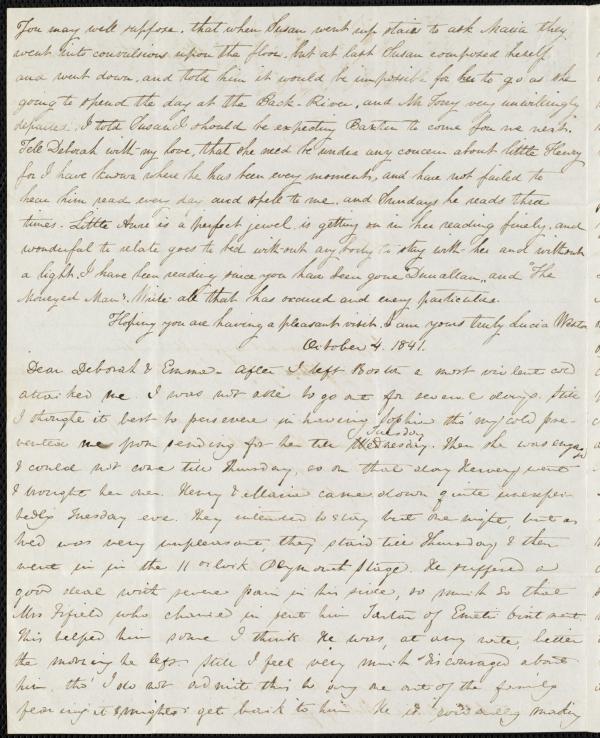 You may well suppose, that when Susan went up stairs to ask Maria they
went into convulsions upon the floor, but at last Susan composed herself
and went down, and told him it would be impossible for her to go as she
going to spend the day at the Back-River, and Mr Torry very unwillingly
departed. I told Susan I should be expecting Baxter to come for me next.
Tell Deborah with my love, that she need be under any concern about little Henry
for I have known where he has been every moment, and have not failed to
hear him read every day and spell to me, and Sundays he reads three
times. Little Anne is a perfect jewel is getting on in her reading finely, and
wonderful to relate goes to bed without any body to stay with her and without
a light. I have been reading since you have been gone Dunallan, and "The
Moneyed Man". Write all that has occured and every particular.
Hoping you are having a pleasant visit. I am yours truly Lucia Weston
October 4. 1841.
Dear Deborah & Emma- After I left Boston a most violent cold
attacked me. I was not able to go out for several days. Still
I thought it best to persevere in having Sophia tho' my cold pre-
vented me from sending for her till Tuesday Wednesday. Then she was engaged
& could not come till Thursday, so on that day Hervey went
& brought her over. Henry & Maria came down quite unexpec-
tedly Tuesday eve. They intended to stay but one night, but as
Wed was very unpleasant, they staid till Thursday & then
went in in the 11 o'clock Plymouth Stage. He suffered a
good deal with severe pain in his side, so much so that
Mrs Fifield who chanced in sent him Tartar of Emetic ointment.
This helped him some I think. He was, at any rate, better
the morning he left. Still I feel very much discouraged about
him, tho' I do not admit this to any one out of the family
fearing it might get back to him. He is making